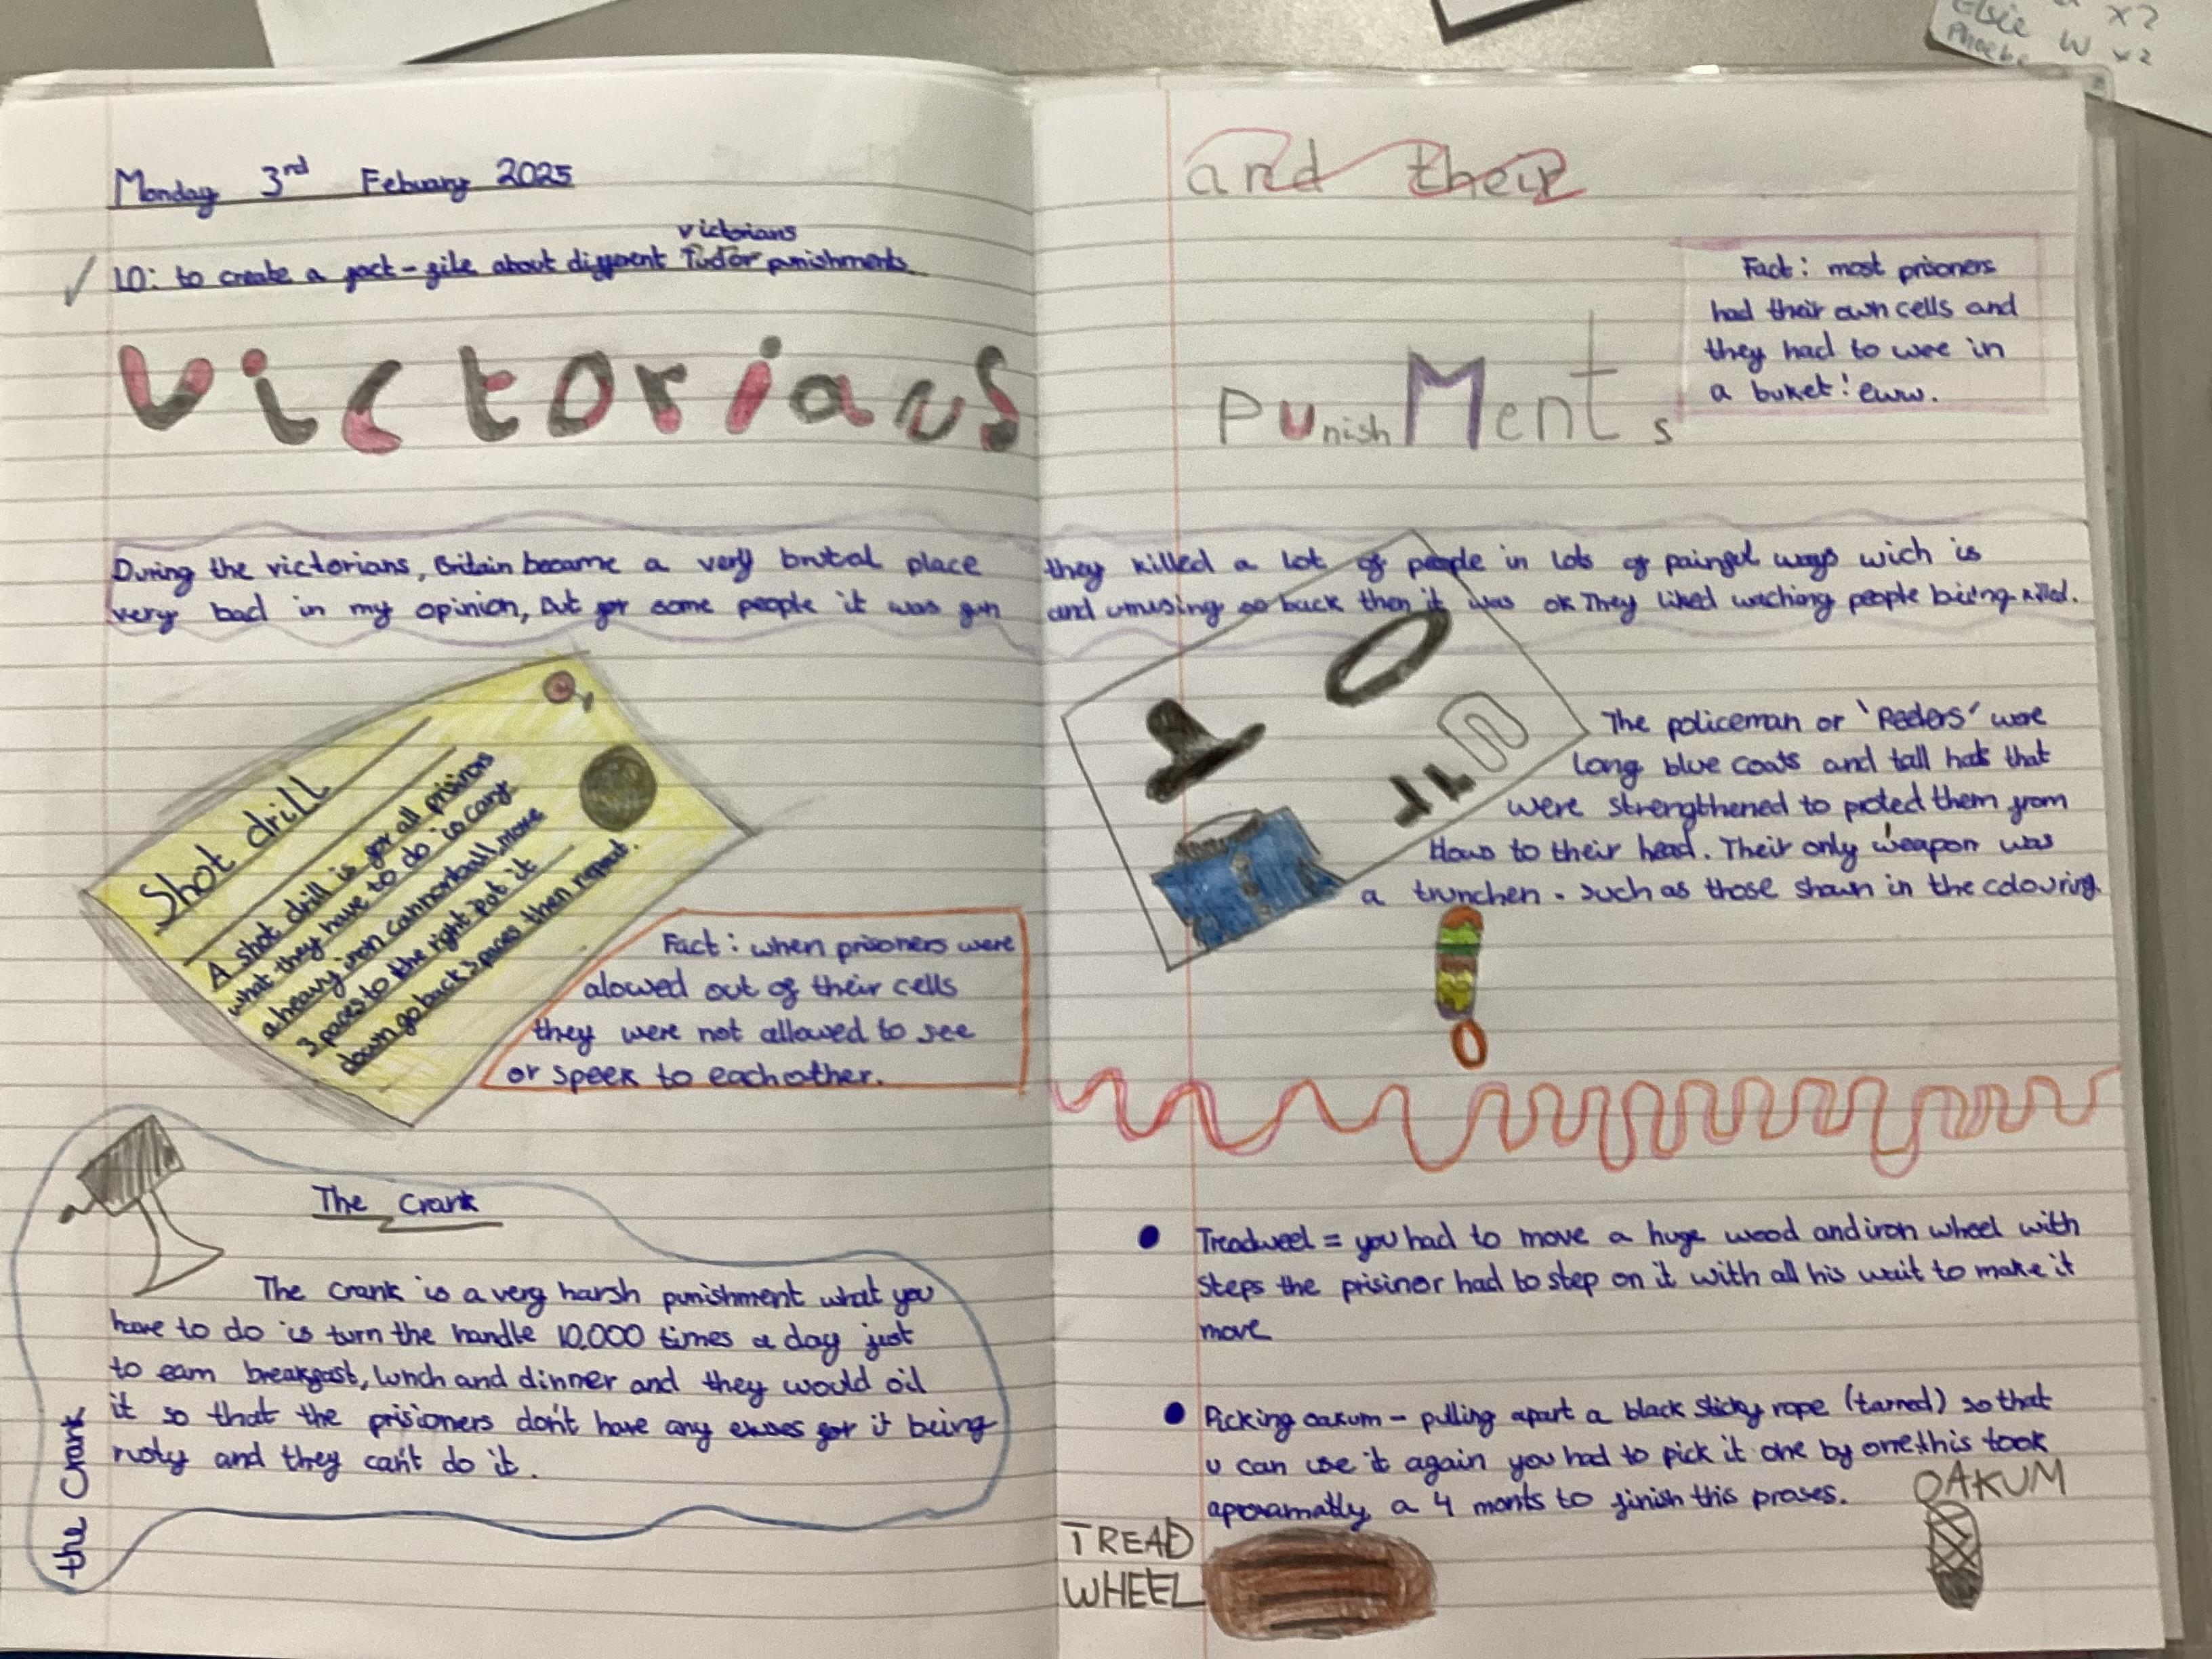 Elsie W x2
Phoebe
Monday 3rd Febuary 2025
victorians
LO: to create a fact-file about different Tudor punishments.
victorians
and their
PunishMents
Fact: most prisoners
had their own cells and
they had to wee in
a buket! eww.
During the victorians, Britain became a very brutal place they killed a lot of people in lots of painful ways wich is
very bad in my opinion, But for some people it was fun and amusing so back then it was ok They liked waching people being killed.
Shot drill
A shot drill is for all prisinors
what they have to do is cary
a heavy iron cannonball, move
3 paces to the right put it
down go back 3 paces then repeat.
Fact: when prisoners were
alowed out of their cells
they were not allowed to see
or speek to eachother.
The policeman or 'Peelers' wore
long blue coats and tall hats that
were strengthened to proted them from
blows to their head. Their only weapon was
a trunchen. such as those shown in the colouring
The Crank
The crank is a very harsh punishment what you
have to do is turn the handle 10,000 times a day just
to earn breakfast, lunch and dinner and they would oil
it so that the prisioners don't have any exuses for it being
rusty and they can't do it.
the Crank
Treadweel = you had to move a huge wood and iron wheel with
steps the prisinor had to step on it with all his wait to make it
move
Picking oakum - pulling apart a black sticky rope (tarred) so that
u can use it again you had to pick it one by one. this took
aproxamatly a 4 monts to finish this proses.
OAKUM
TREAD
WHEEL